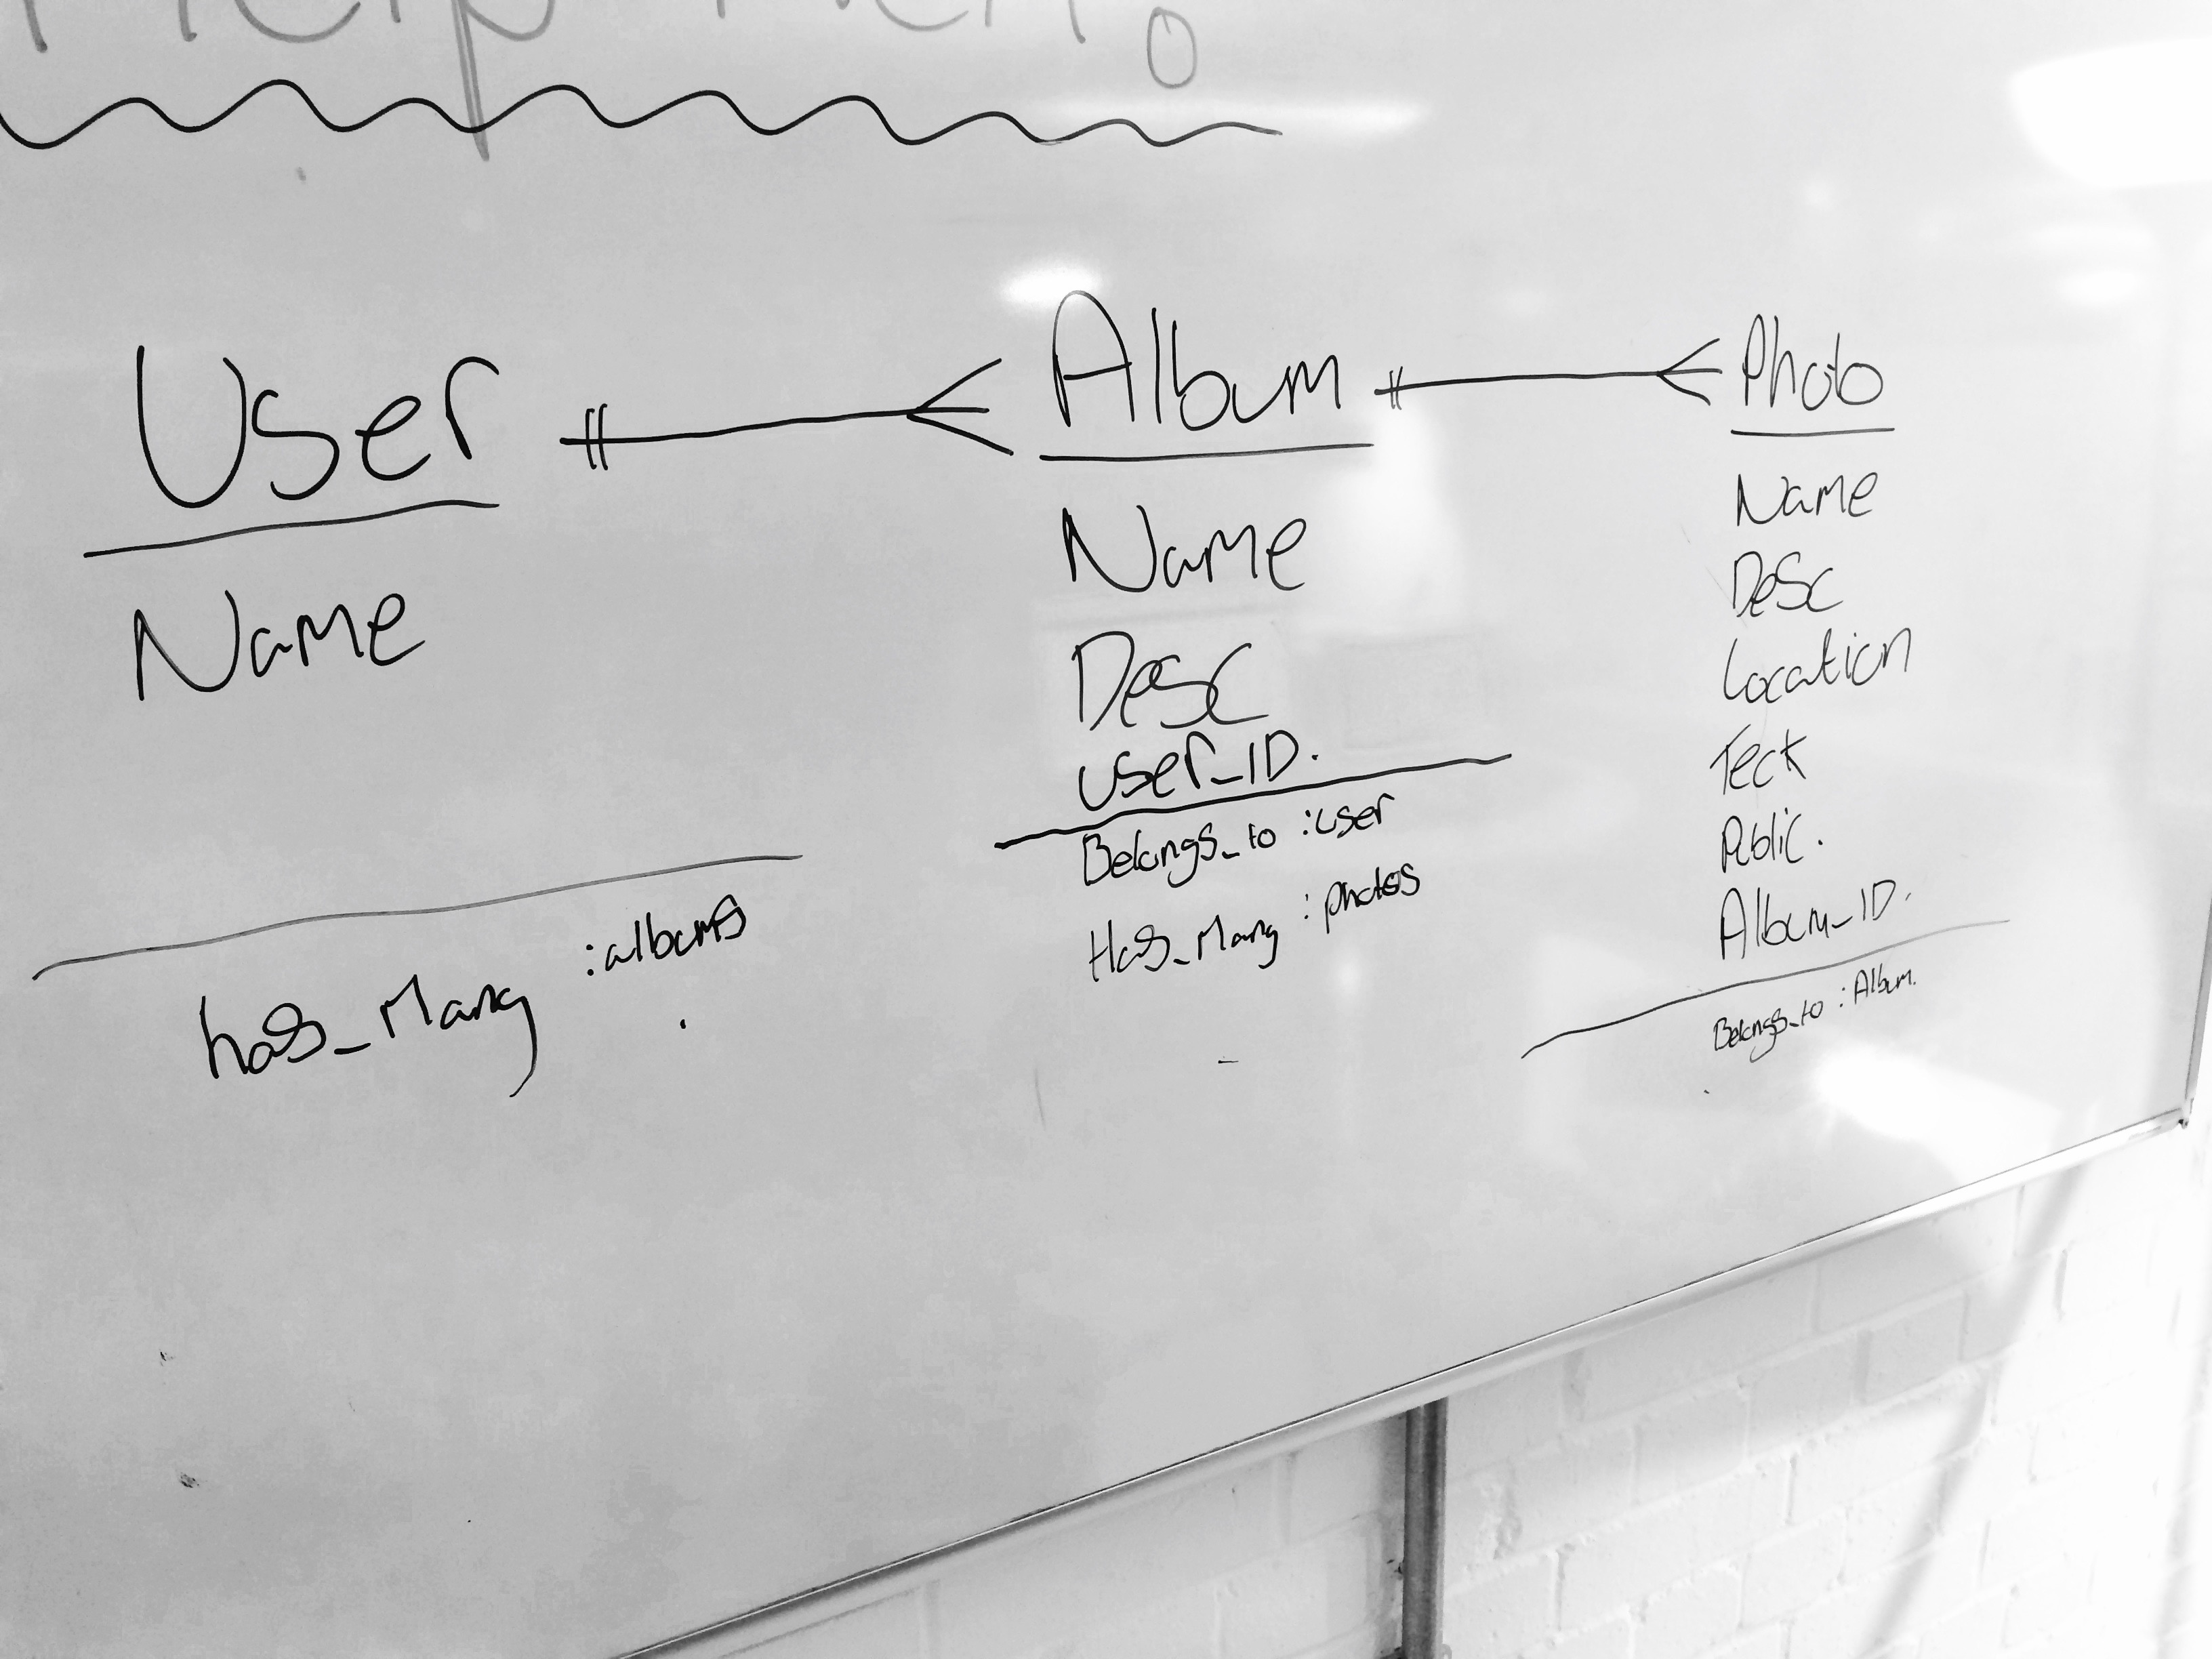 User
Name
has_Many :albums
Album
Name
Desc
User_ID.
Belongs_to :user
Has_Many :photos
Photo
Name
Desc
Location
Teck
Public.
Album_ID.
Belongs_to :Album.